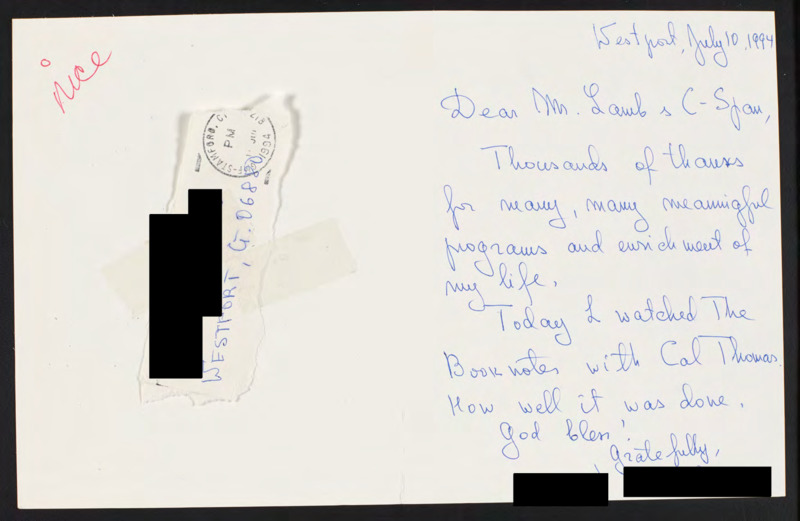 nice
STAMFORD, C
PM
1994
WESTPORT, Ct. 06880
Westport, July 10, 1994
Dear Mr. Lamb & C-Span,
Thousands of thanks
for many, many meaningful
programs and enrichment of
my life.
Today I watched The
Booknotes with Cal Thomas.
How well it was done.
God bless!
Gratefully,